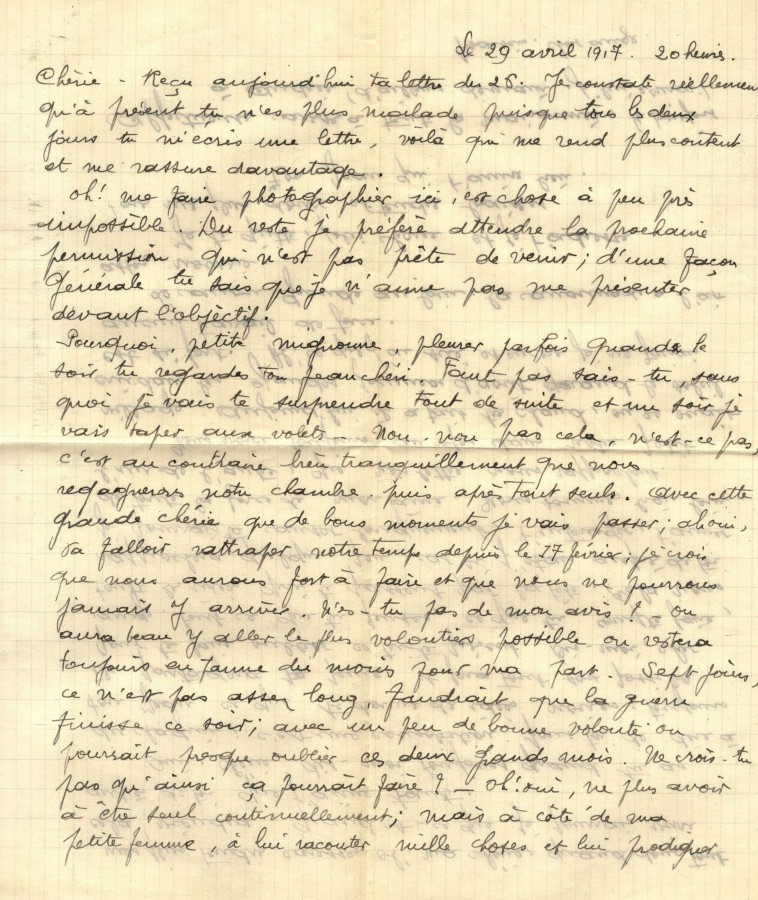 Le 29 avril 1917. 20 heures.
Chérie - Reçu aujourd'hui ta lettre du 26. Je constate réellement
qu'à présent tu n'es plus malade puisque tous les deux
jours tu m'écris une lettre, voilà qui me rend plus content
et me rassure davantage.
Oh! me faire photographier ici, est chose à peu près
impossible. Du reste je préfère attendre la prochaine
permission qui n'est pas prête de venir; d'une façon
générale tu sais que je n'aime pas me présenter
devant l'objectif.
Pourquoi, petite mignonne, pleurer parfois quand le
soir tu regardes ton Jean chéri. Faut pas sais-tu, sans
quoi je vais te surprendre tout de suite et un soir je
vais taper aux volets - Non, non pas cela, n'est-ce pas,
c'est au contraire bien tranquillement que nous
regagnerons notre chambre. puis après tout seuls. avec cette
grande chérie que de bons moments je vais passer; ah oui,
va falloir rattraper notre temps depuis le 17 février; je crois
que nous aurons fort à faire et que nous ne pourrons
jamais y arriver. N'es-tu pas de mon avis? - on
aura beau y aller le plus volontiers possible on restera
toujours en panne du moins pour ma part. Sept jours,
ce n'est pas assez long, faudrait que la guerre
finisse ce soir; avec un peu de bonne volonté on
pourrait presque oublier ces deux grands mois. Ne crois-tu
pas qu'ainsi ça pourrait faire? - Oh! oui, ne plus avoir
à être seul continuellement; mais à côté de ma
petite femme, à lui raconter mille choses et lui prodiguer